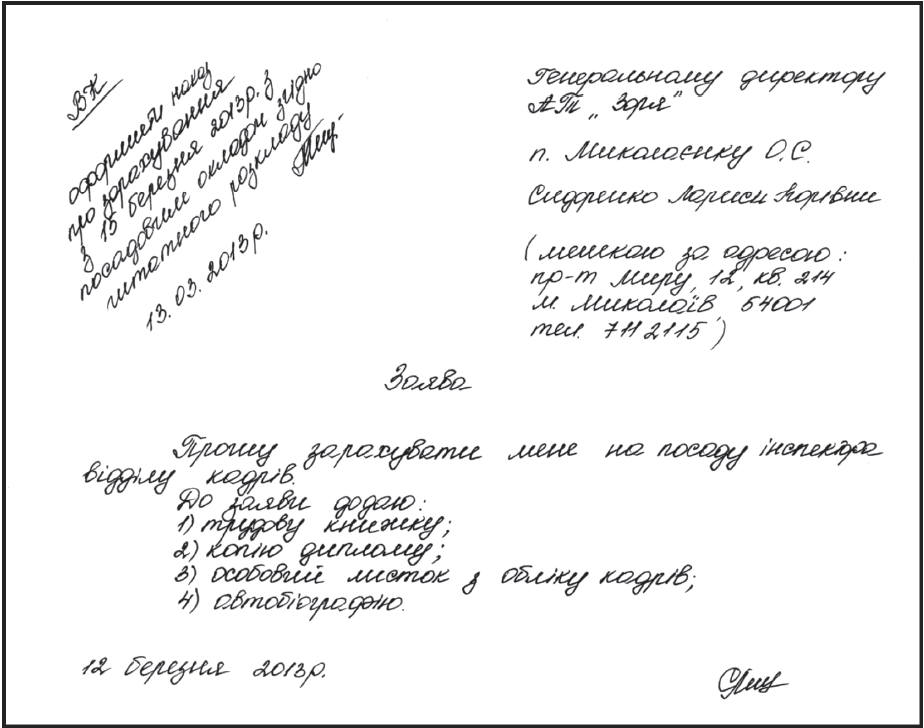 ВК
оформити наказ
про зарахування
з 15 березня 2013р. з
посадовим окладом згідно
штатного розкладу
13.03.2013р.
Генеральному директору
АТ „Зоря"
п. Миколаєнку О.С.
Сидоренко Лариси Ігорівни
(мешкаю за адресою:
пр-т Миру, 12, кв. 214
м. Миколаїв, 54001
тел. 7112115)
Заява
Прошу зарахувати мене на посаду інспектора
відділу кадрів.
До заяви додаю:
1) трудову книжку;
2) копію диплому;
3) особовий листок з обліку кадрів;
4) автобіографію.
12 березня 2013р.